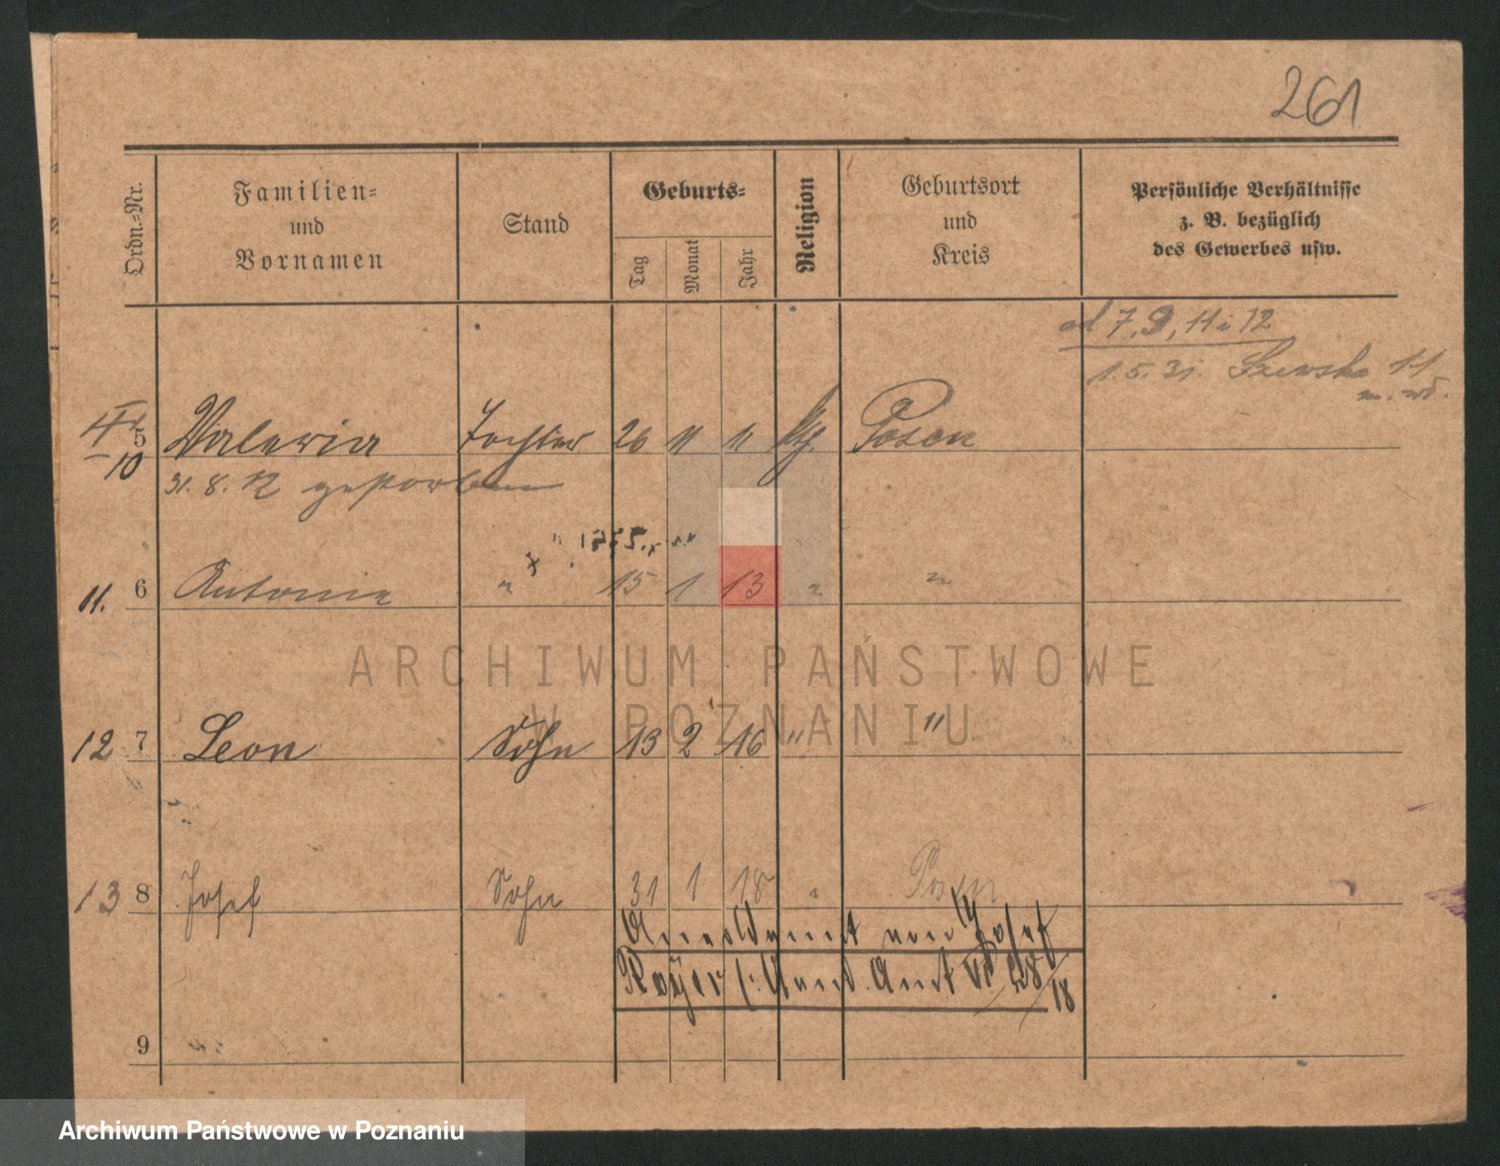 261
Ordn.=Nr.
Familien=
und
Vornamen
Stand
Geburts=
Tag
Monat
Jahr
Religion
Geburtsort
und
Kreis
Persönliche Verhältnisse
z. B. bezüglich
des Gewerbes usw.
od 7, 9, 11 i 12
1.5.31. Szewska 11
10 5 Valeria Tochter 26 11 11 kth. Posen
31.8.12 gestorben
11. 6 Antonie " 15 1 13 " "
ARCHIWUM PAŃSTWOWE
W POZNANIU
12 7 Leon Sohn 13 2 16 " "
13 8 Josef Sohn 31 1 18 " Posen
von Josef
Amt VI 28/18
9
Archiwum Państwowe w Poznaniu